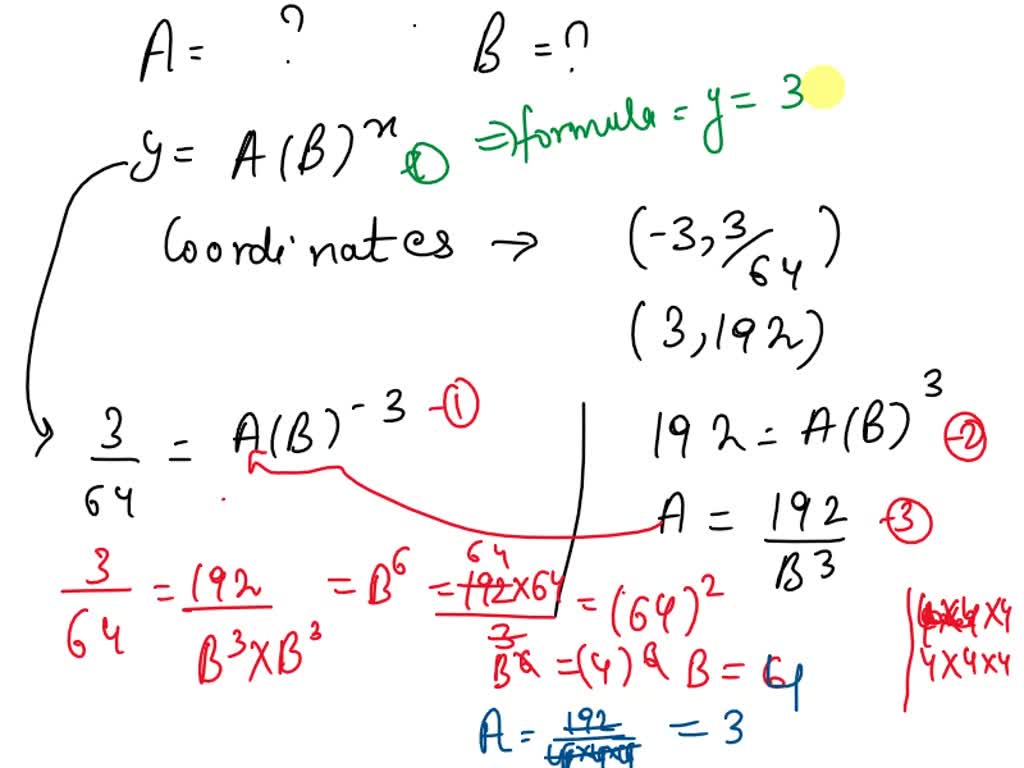 A = ? B = ?
y = A(B)^x ① ⇒ formula = y = 3
Coordinates → (-3, 3/64)
(3, 192)
3/64 = A(B)^-3 -①
192 = A(B)^3 -②
A = 192/B^3 -③
3/64 = 192/(B^3 × B^3) = B^6 = (192 × 64)/3 = (64)^2
64
B^6 = (4)^6 B = 4
4×4×4
4×4×4
A = 192/(4×4×4) = 3